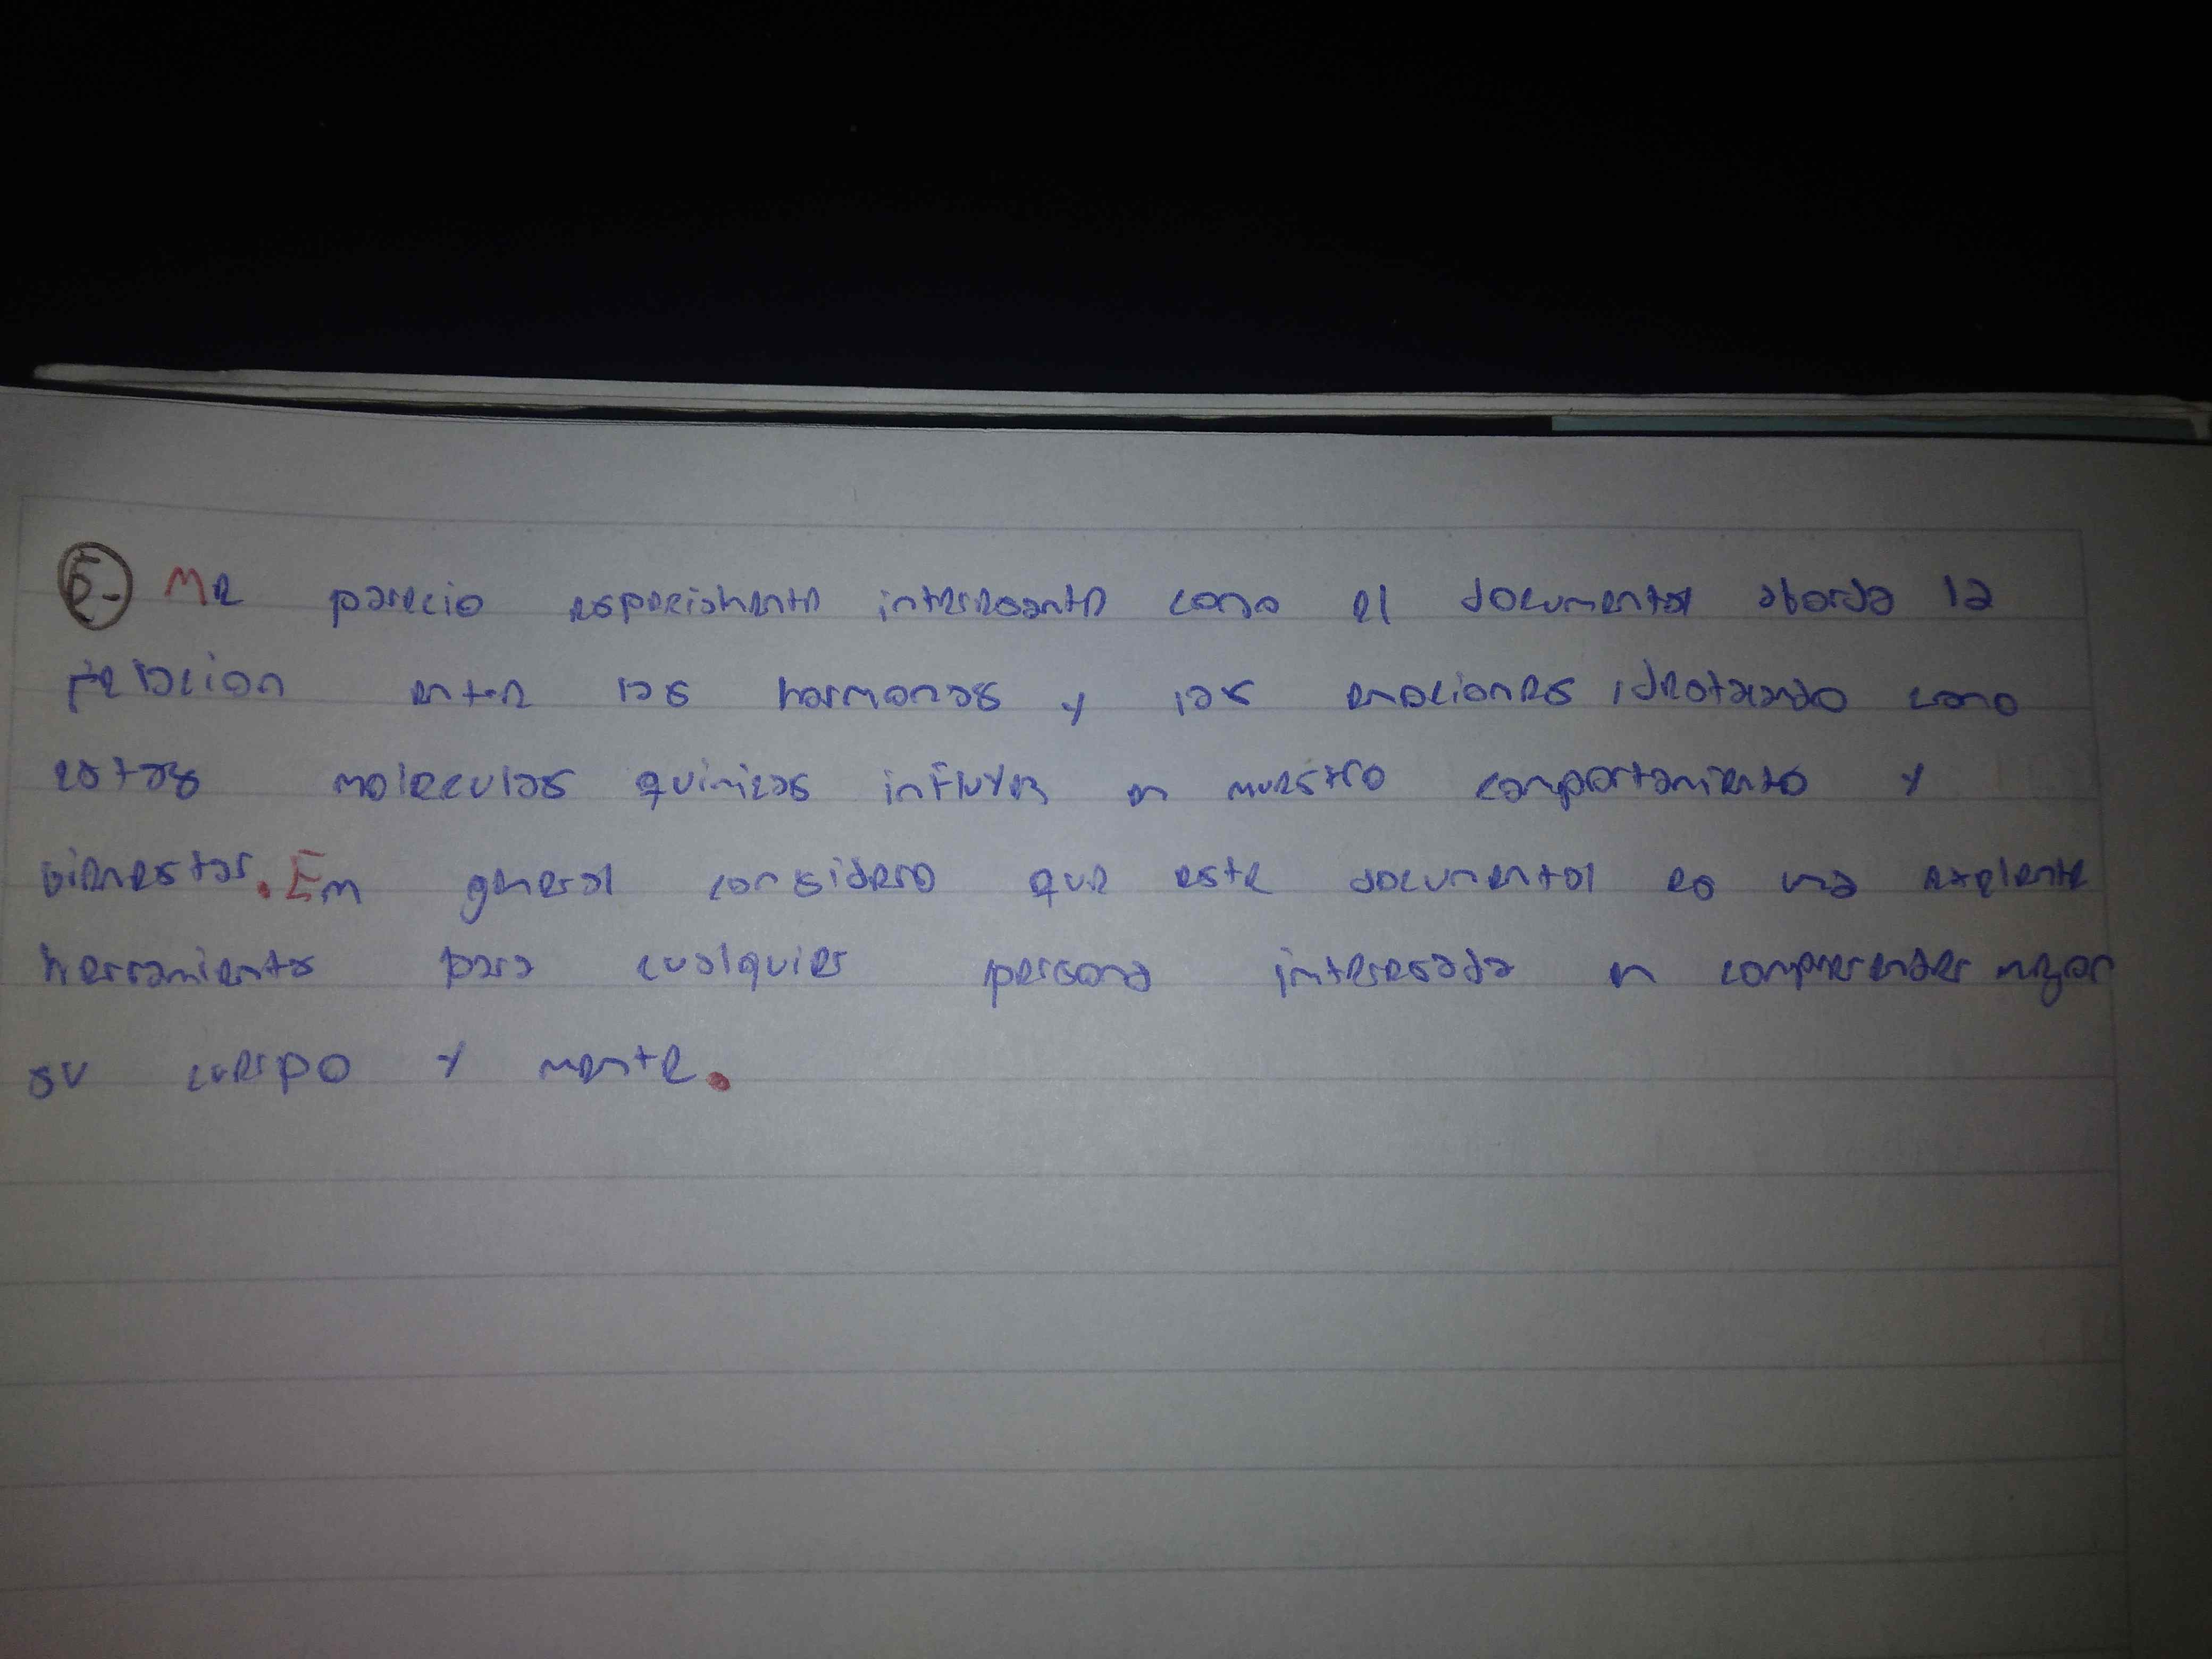 5- Me parecio especialmente interesante como el documental aborda la
relacion entre las hormonas y las emociones, destacando como
estas moleculas químicas influyen en nuestro comportamiento y
bienestar. En general considero que este documental es una exelente
herramienta para cualquier persona interesada en comprender mejor
su cuerpo y mente.